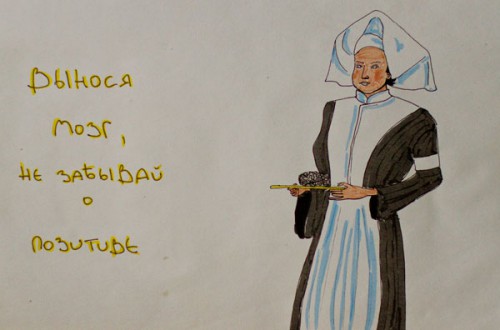 Вынося
мозг,
не забывай
о
позитиве